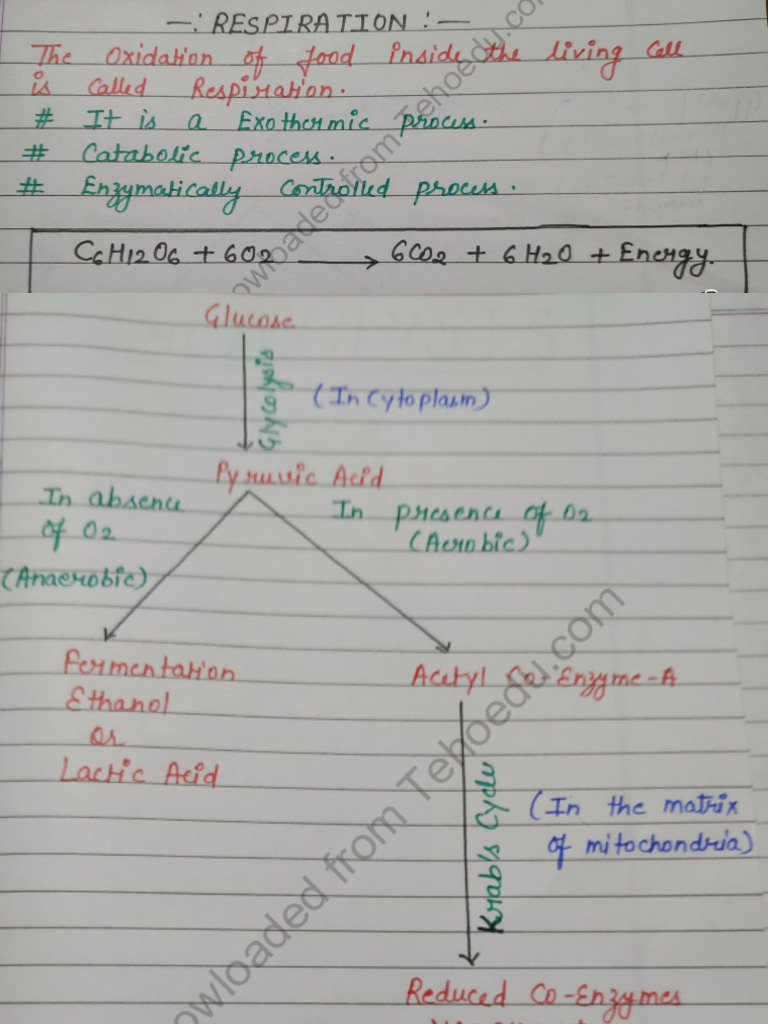 —: RESPIRATION :—
The Oxidation of food inside the living Cell
is Called Respiration.
# It is a Exothermic process.
# Catabolic process.
# Enzymatically Controlled process.
C6H12O6 + 6O2 ⟶ 6CO2 + 6H2O + Energy.
Glucose
Glycolysis
(In Cytoplasm)
Pyruvic Acid
In absence
of O2
(Anaerobic)
In presence of O2
(Aerobic)
Fermentation
Ethanol
or
Lactic Acid
Acetyl Co-Enzyme-A
Krab's Cycle
(In the matrix
of mitochondria)
Reduced Co-Enzymes
ownloaded from Tehoedu.com
ownloaded from Tehoedu.com